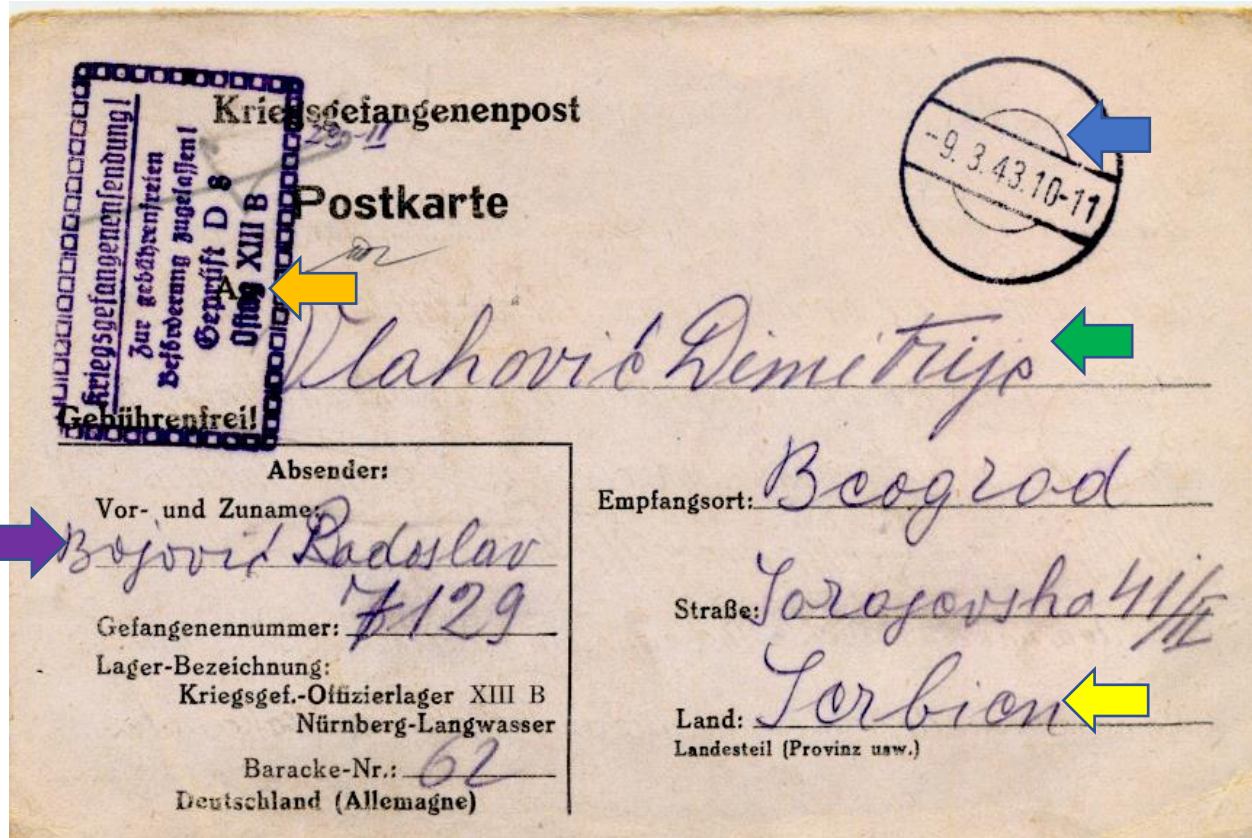 Kriegsgefangenensendung!
Zur gebührenfreien
Beförderung zugelassen!
Geprüft D 8
Oflag XIII B
Kriegsgefangenenpost
Postkarte
-9. 3. 43. 10-11
Vlahović Dimitrije
Gebührenfrei!
Absender:
Vor- und Zuname:
Bojović Radoslav
Gefangenennummer: 7129
Lager-Bezeichnung:
Kriegsgef.-Offizierlager XIII B
Nürnberg-Langwasser
Baracke-Nr.: 62
Deutschland (Allemagne)
Empfangsort: Beograd
Straße: Sarajevska 41/II
Land: Serbien
Landesteil (Provinz usw.)